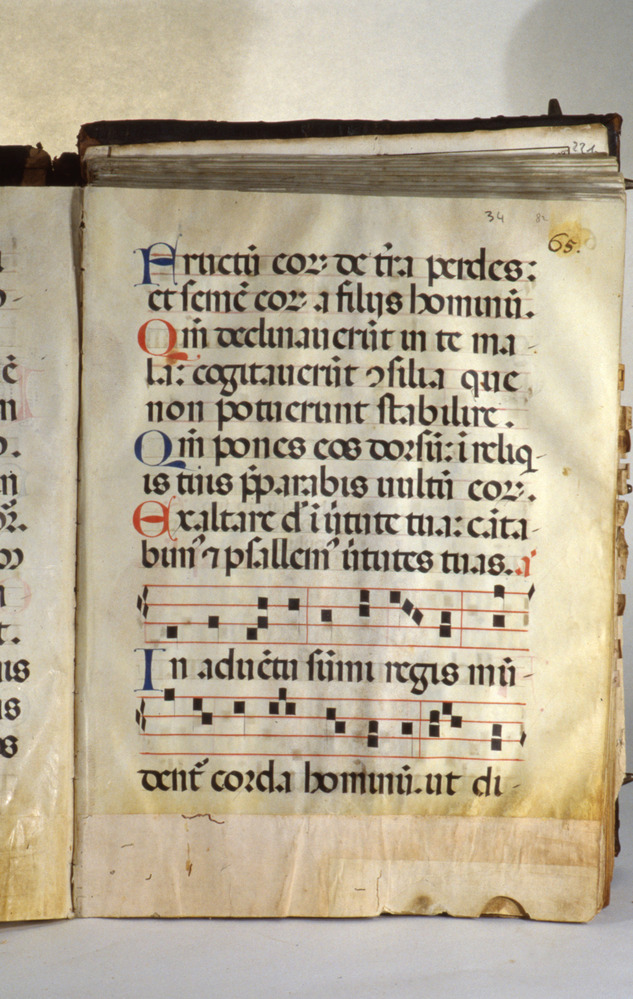 34
65.
Fructū coꝝ de t̄ra perdes:
et semē coꝝ a filijs hominū.
Qm̄ declinauerūt in te ma-
la: cogitauerūt ꝯsilia que
non potuerunt stabilire.
Qm̄ pones eos dorsū: ī reliq-
is tuis p̄parabis uultū coꝝ.
Exaltare d' ī ũtute tua: cāta-
bim' ⁊ psallem' ũtutes tuas. a'
In aduētu sūmi regis mū-
dent̄ corda hominū. ut di-